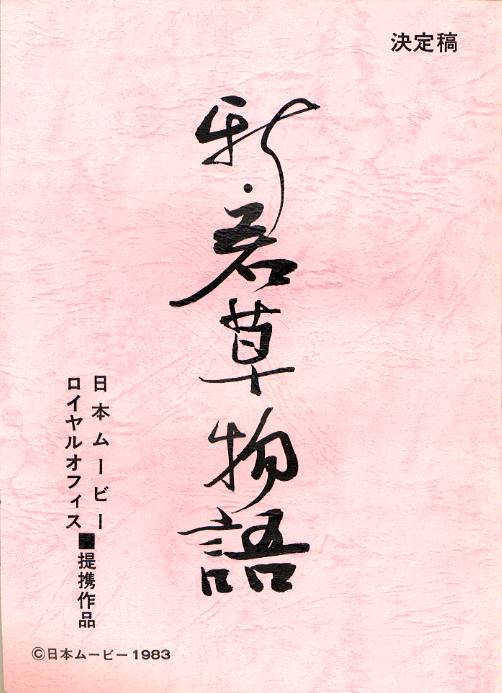 決定稿
新・若草物語
日本ムービー
ロイヤルオフィス■提携作品
©日本ムービー1983